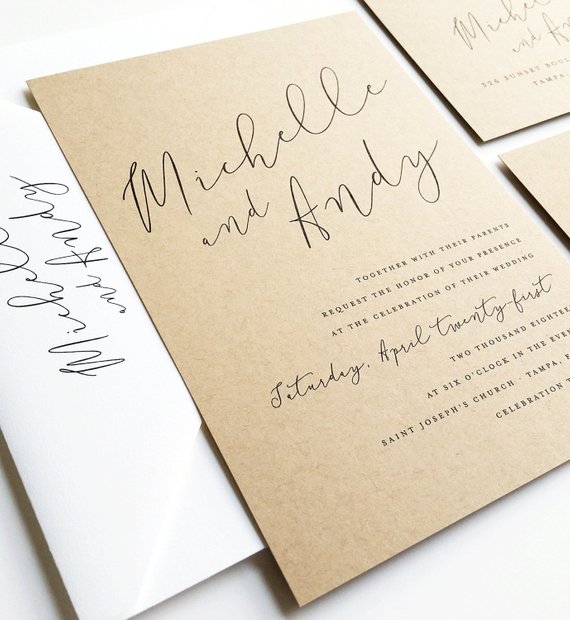 Michelle
and Andy
TOGETHER WITH THEIR PARENTS
REQUEST THE HONOR OF YOUR PRESENCE
AT THE CELEBRATION OF THEIR WEDDING
Saturday, April twenty-first
TWO THOUSAND
AT SIX O'CLOCK IN THE
SAINT JOSEPH'S CHURCH · TAMPA,
CELEBRATION
Michelle
and Andy
326 SUNSET
TAMPA,
Michelle
and Andy